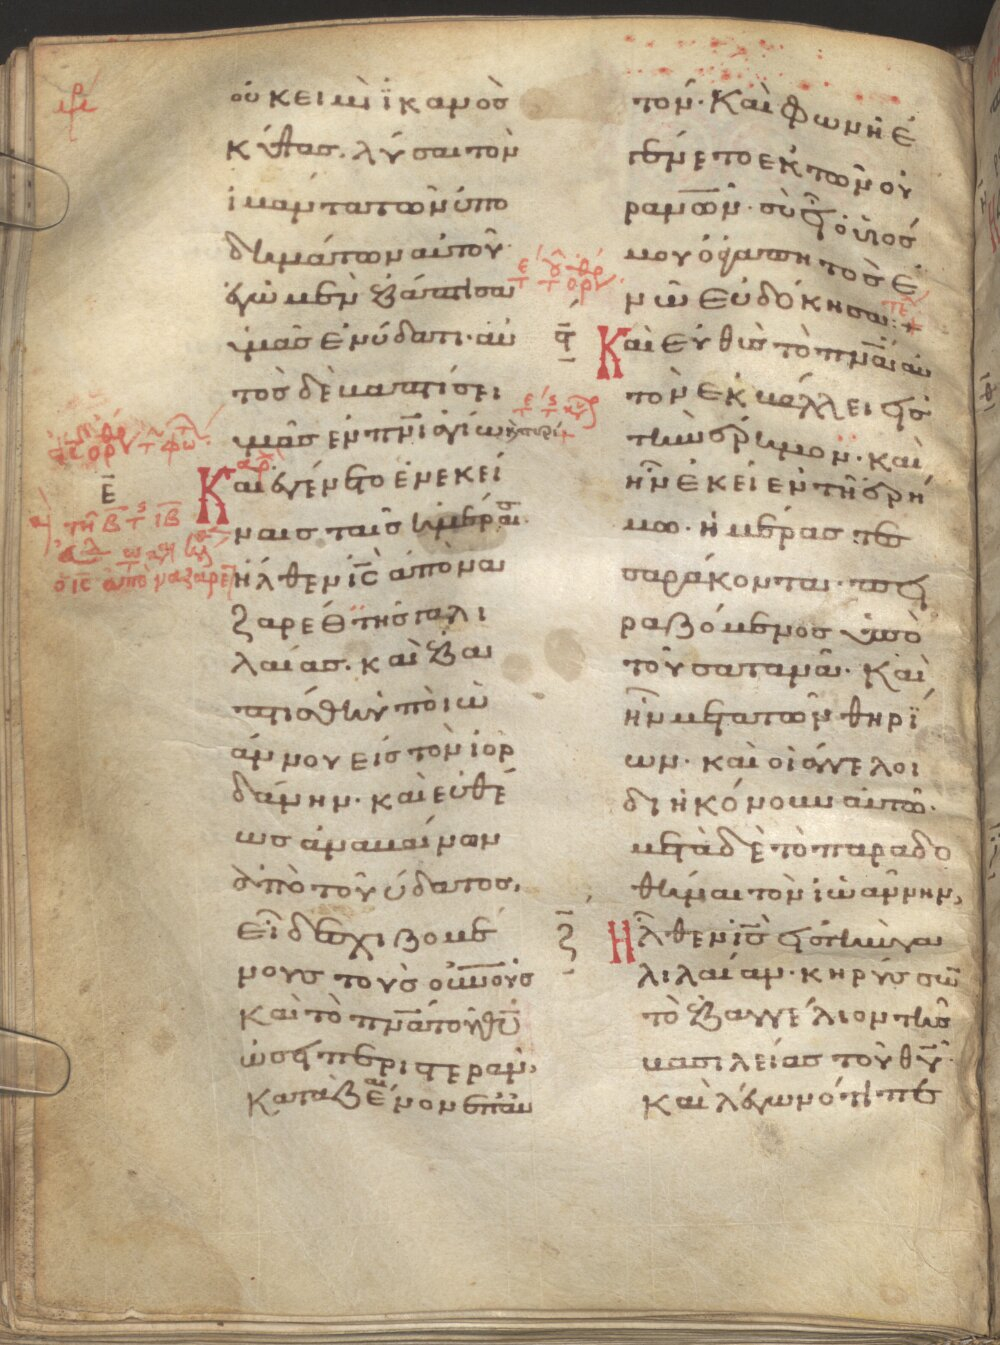 οὐκ εἰμὶ ἱκανὸς
κύψας. λύσαι τὸν
ἱμάντα τῶν ὑπο
δημάτων αὐτοῦ·
ἐγὼ μὲν ἐβάπτισα
ὑμᾶς ἐν ὕδατι· αὐ
τὸς δὲ βαπτίσει
ὑμᾶς ἐν πνι ἁγίω
Καὶ ἐγένετο ἐν ἐκεί
ναις ταῖς ἡμέραις
ἦλθεν ις ἀπὸ να
ζαρὲθ τῆς γαλι
λαίας. καὶ ἐβα
πτίσθη ὑπὸ ἰω
άννου εἰς τὸν ἰορ
δάνην· καὶ εὐθέ
ως ἀναβαίνων
ἀπὸ τοῦ ὕδατος,
εἶδε σχιζομέ
νους τοὺς οὐνούς
καὶ τὸ πνα τοῦ θυ
ὡσεὶ περιστεράν,
καταβαῖνον ἐπ' αὐ
τόν· Καὶ φωνὴ ἐ
γένετο ἐκ τῶν οὐ
ρανῶν· σὺ εἶ ὁ υἱός
μου ὁ ἀγαπητὸς ἐ
ν ὧ εὐδόκησα:+
Καὶ εὐθὺς τὸ πνα αὐ
τὸν ἐκβάλλει εἰς
τὴν ἔρημον. καὶ
ἦν ἐκεῖ ἐν τῆ ἐρή
μω. ἡμέρας τεσ
σαράκοντα. πει
ραζόμενος ὑπὸ
τοῦ σατανᾶ. Καὶ
ἦν μετὰ τῶν θηρί
ων. καὶ οἱ ἄγγελοι
διηκόνουν αὐτῶ.
μετὰ δὲ τὸ παραδο
θῆναι τὸν ἰωάννην,
Ἦλθεν ις εἰς τὴν γα
λιλαίαν· κηρύσσων
τὸ εὐαγγέλιον τῆς
βασιλείας τοῦ θυ·
καὶ λέγων ὅτι πε
ε
ϛ
ζ
ὁ ις ἀπὸ ναζαρὲτ